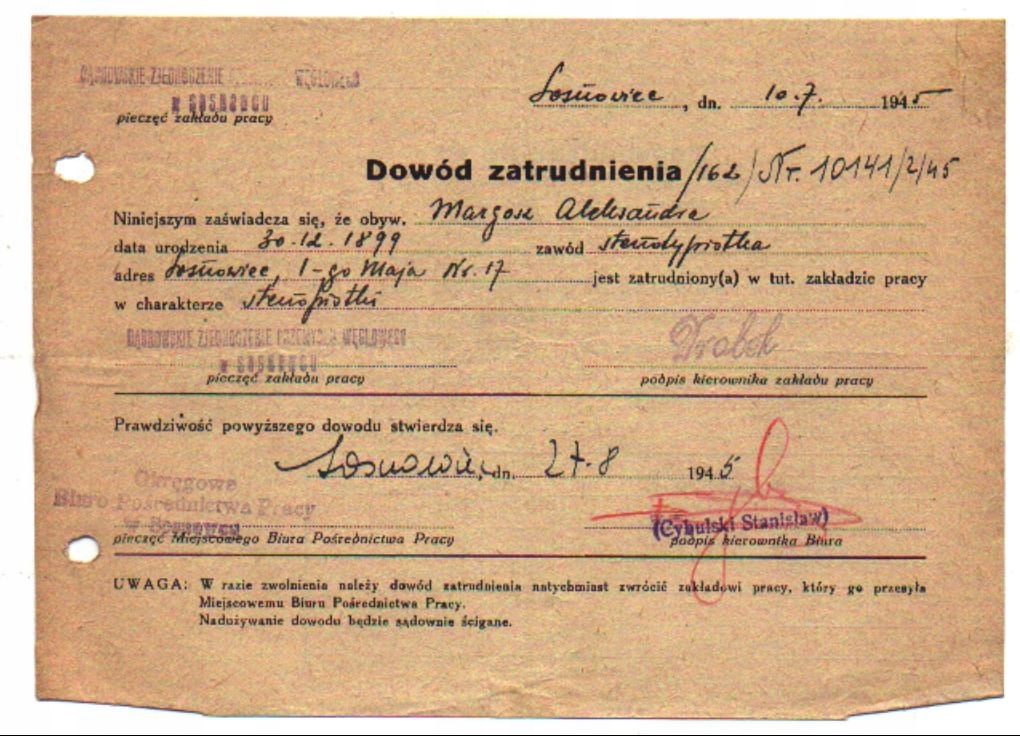 DĄBROWSKIE ZJEDNOCZENIE WĘGLOWEGO
w SOSNOWCU
pieczęć zakładu pracy
Sosnowiec, dn. 10.7. 1945
Dowód zatrudnienia /162/ Nr. 10141/2/45
Niniejszym zaświadcza się, że obyw. Margosz Aleksandra
data urodzenia 30.12.1899 zawód stenotypistka
adres Sosnowiec, 1-go Maja Nr. 17 jest zatrudniony(a) w tut. zakładzie pracy
w charakterze
DĄBROWSKIE ZJEDNOCZENIE PRZEMYSŁU WĘGLOWEGO
w SOSNOWCU
Drobek
pieczęć zakładu pracy podpis kierownika zakładu pracy
Prawdziwość powyższego dowodu stwierdza się.
Sosnowiec, dn. 27.8 1945
Okręgowe
Biuro Pośrednictwa Pracy
w Sosnowcu
(Cybulski Stanisław)
pieczęć Miejscowego Biura Pośrednictwa Pracy podpis kierownika Biura
UWAGA: W razie zwolnienia należy dowód zatrudnienia natychmiast zwrócić zakładowi pracy, który go przesyła
Miejscowemu Biuru Pośrednictwa Pracy.
Nadużywanie dowodu będzie sądownie ścigane.